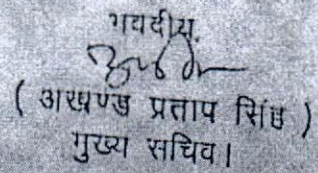 भवदीय,
( अखण्ड प्रताप सिंह )
मुख्य सचिव।